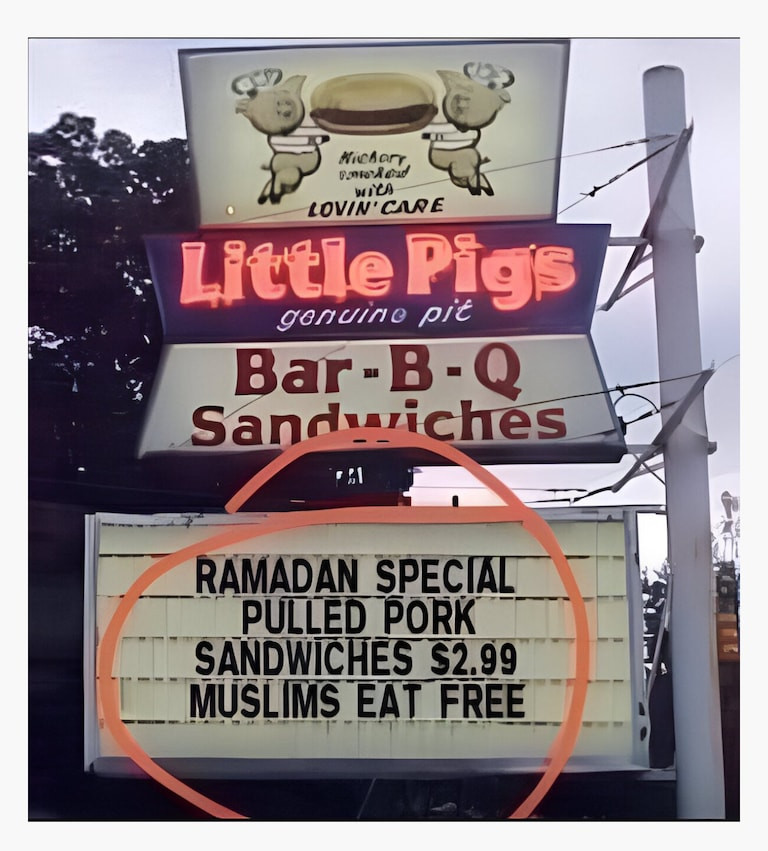 Hickory
with
LOVIN' CARE
Little Pigs
genuine pit
Bar-B-Q
Sandwiches
RAMADAN SPECIAL
PULLED PORK
SANDWICHES $2.99
MUSLIMS EAT FREE